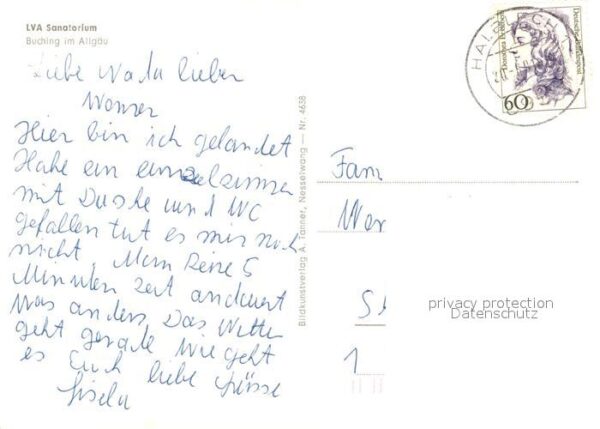 LVA Sanatorium
Buching im Allgäu
Liebe Wa lieber
Werner
Hier bin ich gelandet
Habe ein einzelzimmer
mit Dusche und WC
gefallen tut es mir noch
nicht. Man keine 5
Minuten Zeit andauert
was anders. Das Wetter
geht gerade Wie geht
es Euch liebe Grüsse
Gisela
Bildkunstverlag A. Tanner, Nesselwang — Nr. 4638
Deutsche Bundespost
60
HALBLECH 1
Fam
Wer
S
1
privacy protection
Datenschutz